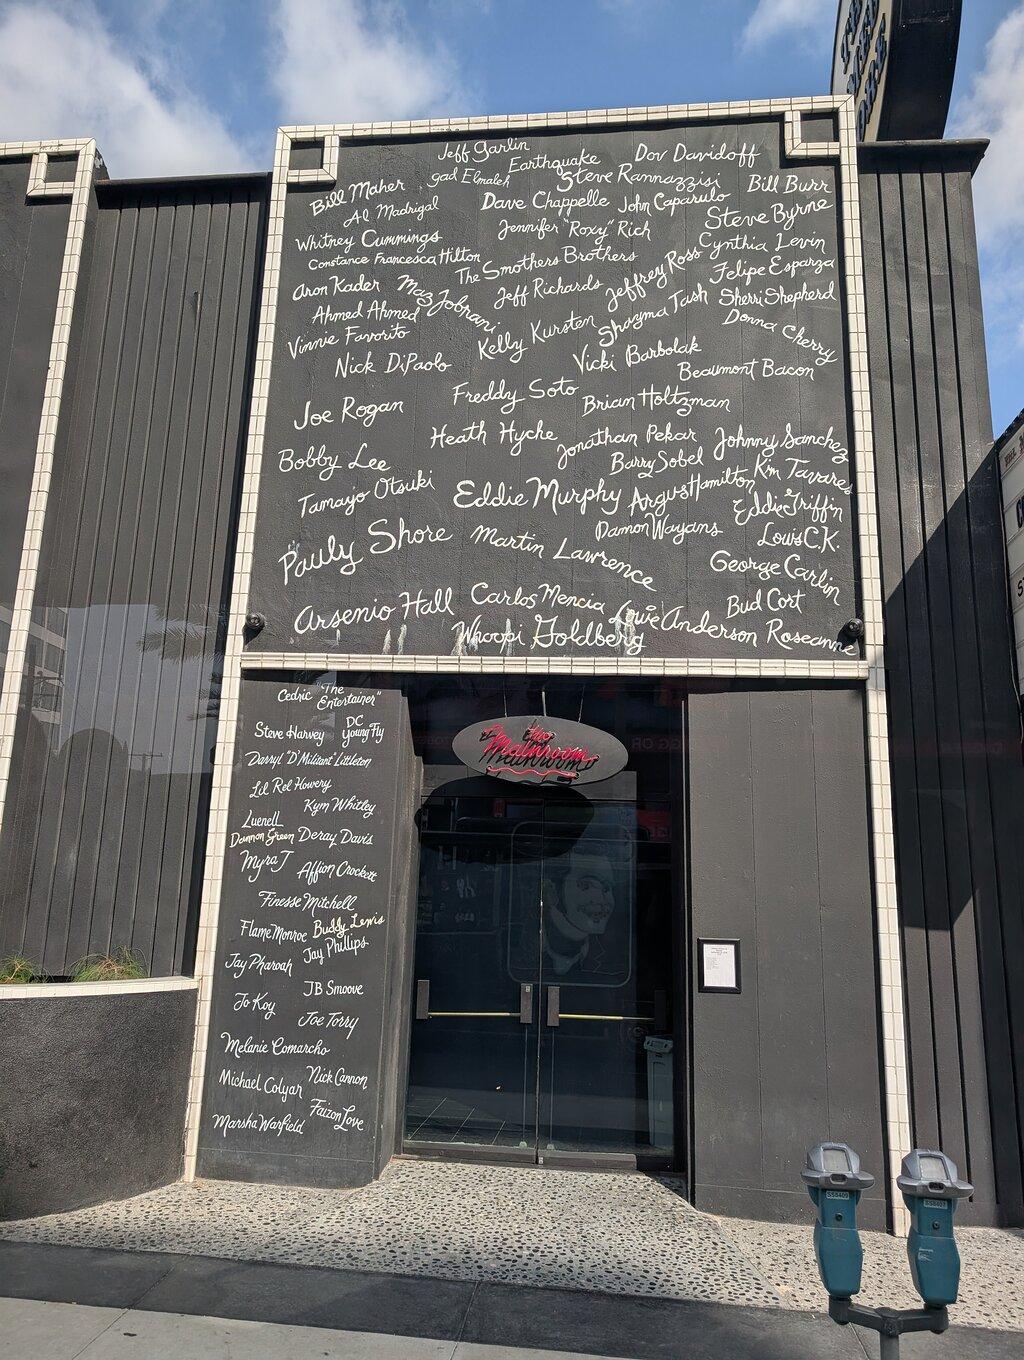 THE
Jeff Garlin
Earthquake
Dov Davidoff
gad Elmaleh
Steve Rannazzisi
Bill Burr
Bill Maher
Dave Chappelle
John Caparulo
Al Madrigal
Steve Byrne
Jennifer "Roxy" Rich
Whitney Cummings
Cynthia Levin
Constance Francesca Hilton
The Smothers Brothers
Jeffrey Ross
Felipe Esparza
Aron Kader
Maz Jobrani
Jeff Richards
Shayma Tash
Sherri Shepherd
Ahmed Ahmed
Donna Cherry
Vinnie Favorito
Kelly Kursten
Vicki Barbolak
Nick DiPaolo
Beaumont Bacon
Freddy Soto
Brian Holtzman
Joe Rogan
Heath Hyche
Jonathan Pekar
Johnny Sanchez
Bobby Lee
Barry Sobel
Kim Tavares
Tamayo Otsuki
Eddie Murphy
Argus Hamilton
Eddie Griffin
Damon Wayans
Louis C.K.
Pauly Shore
Martin Lawrence
George Carlin
Arsenio Hall
Carlos Mencia
Bud Cort
Whoopi Goldberg
Louie Anderson
Roseanne
Cedric "The
Entertainer"
Steve Harvey
DC
Young Fly
Darryl "D'Militant" Littleton
Lil Rel Howery
Kym Whitley
Luenell
Damon Green
Deray Davis
Myra J
Affion Crockett
Finesse Mitchell
Flame Monroe
Buddy Lewis
Jay Phillips
Jay Pharoah
JB Smoove
Jo Koy
Joe Torry
Melanie Comarcho
Michael Colyar
Nick Cannon
Marsha Warfield
Faizon Love
the
Mainroom
SS8409
SS8407